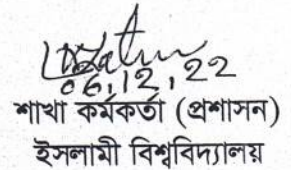 06.12.22
শাখা কর্মকর্তা (প্রশাসন)
ইসলামী বিশ্ববিদ্যালয়